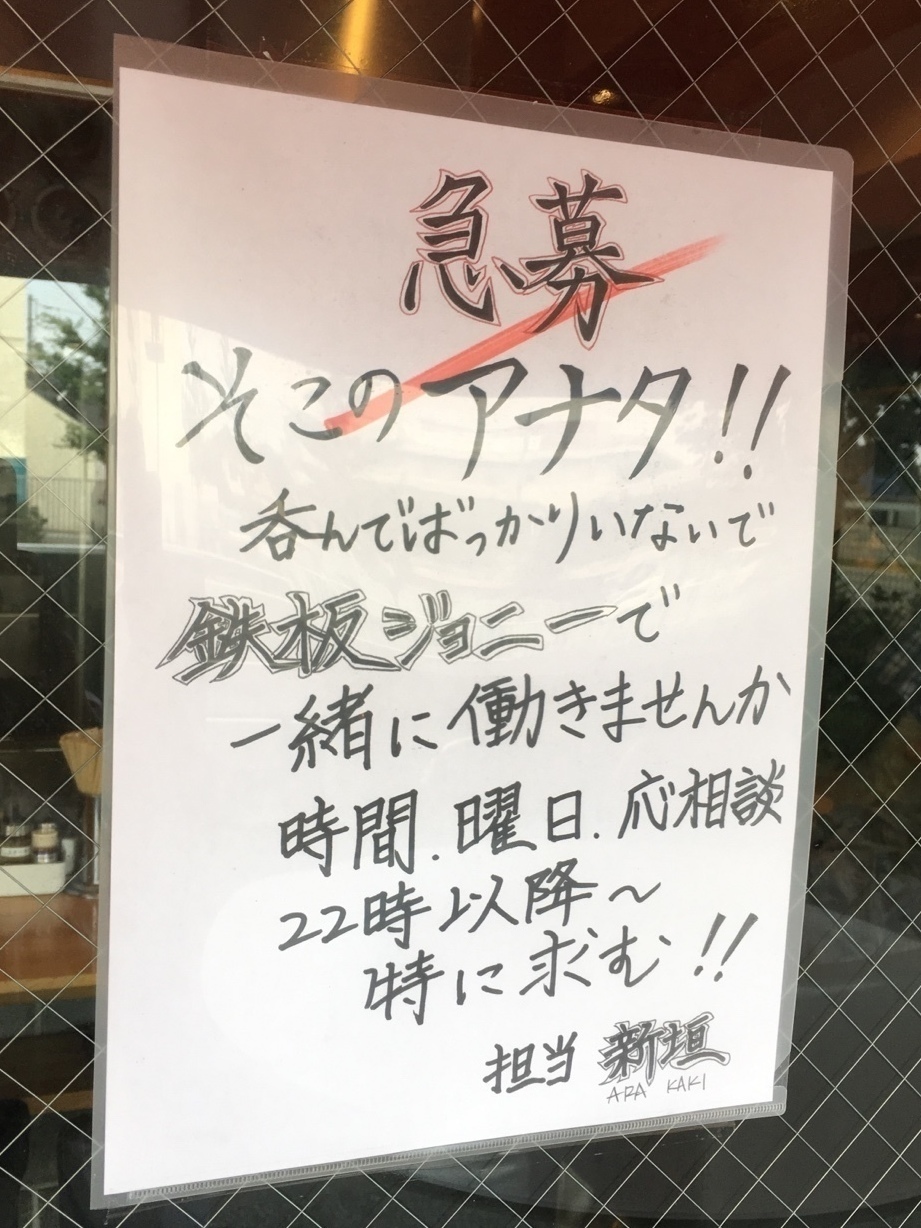 急募
そこのアナタ!!
呑んでばっかりいないで
鉄板ジョニーで
一緒に働きませんか
時間.曜日.応相談
22時以降～
特に求む!!
担当 新垣
ARA KAKI